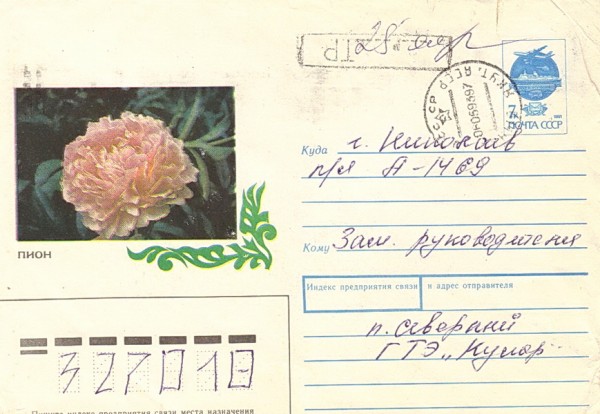 ТР
25 апр
СССР ЯКУТ. АССР
7 к
ПОЧТА СССР
Куда г. Николаев
п/я А-1469
Кому Зам. руководителя
ПИОН
Индекс предприятия связи и адрес отправителя
п. Северный
ГТЭ „Кулар"
327018
Пишите индекс предприятия связи места назначения